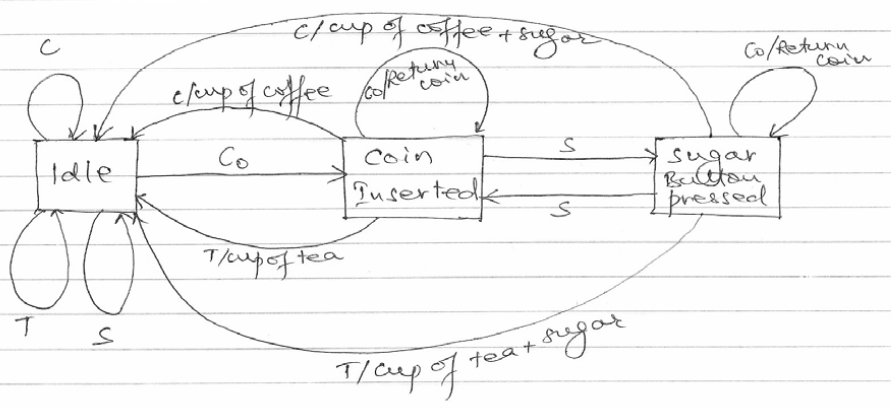 C/cup of coffee + sugar
C
Co/Return
coin
C/cup of coffee
Co/Return
coin
Idle
Co
coin
Inserted
S
S
Sugar
Button
pressed
T/cup of tea
T
S
T/cup of tea + sugar